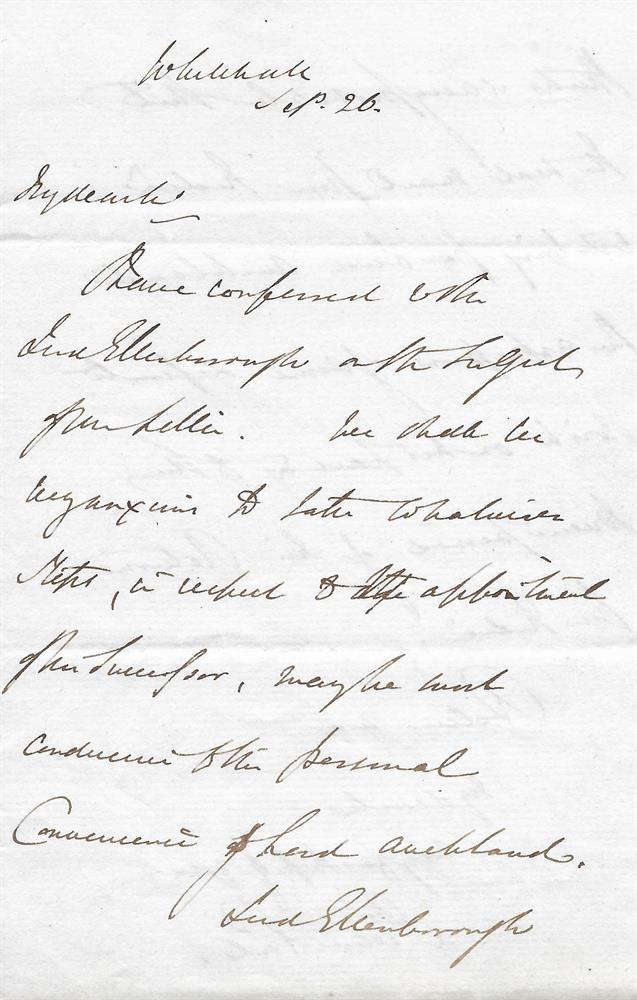 Whitehall
Sep. 26.
My dear Sir
I have conferred with
Lord Ellenborough on the subject
of your Letter. We shall be
very anxious to take whatever
steps, in respect to the appointment
of his Successor, may be most
conducive to the personal
Convenience of Lord Auckland.
Lord Ellenborough